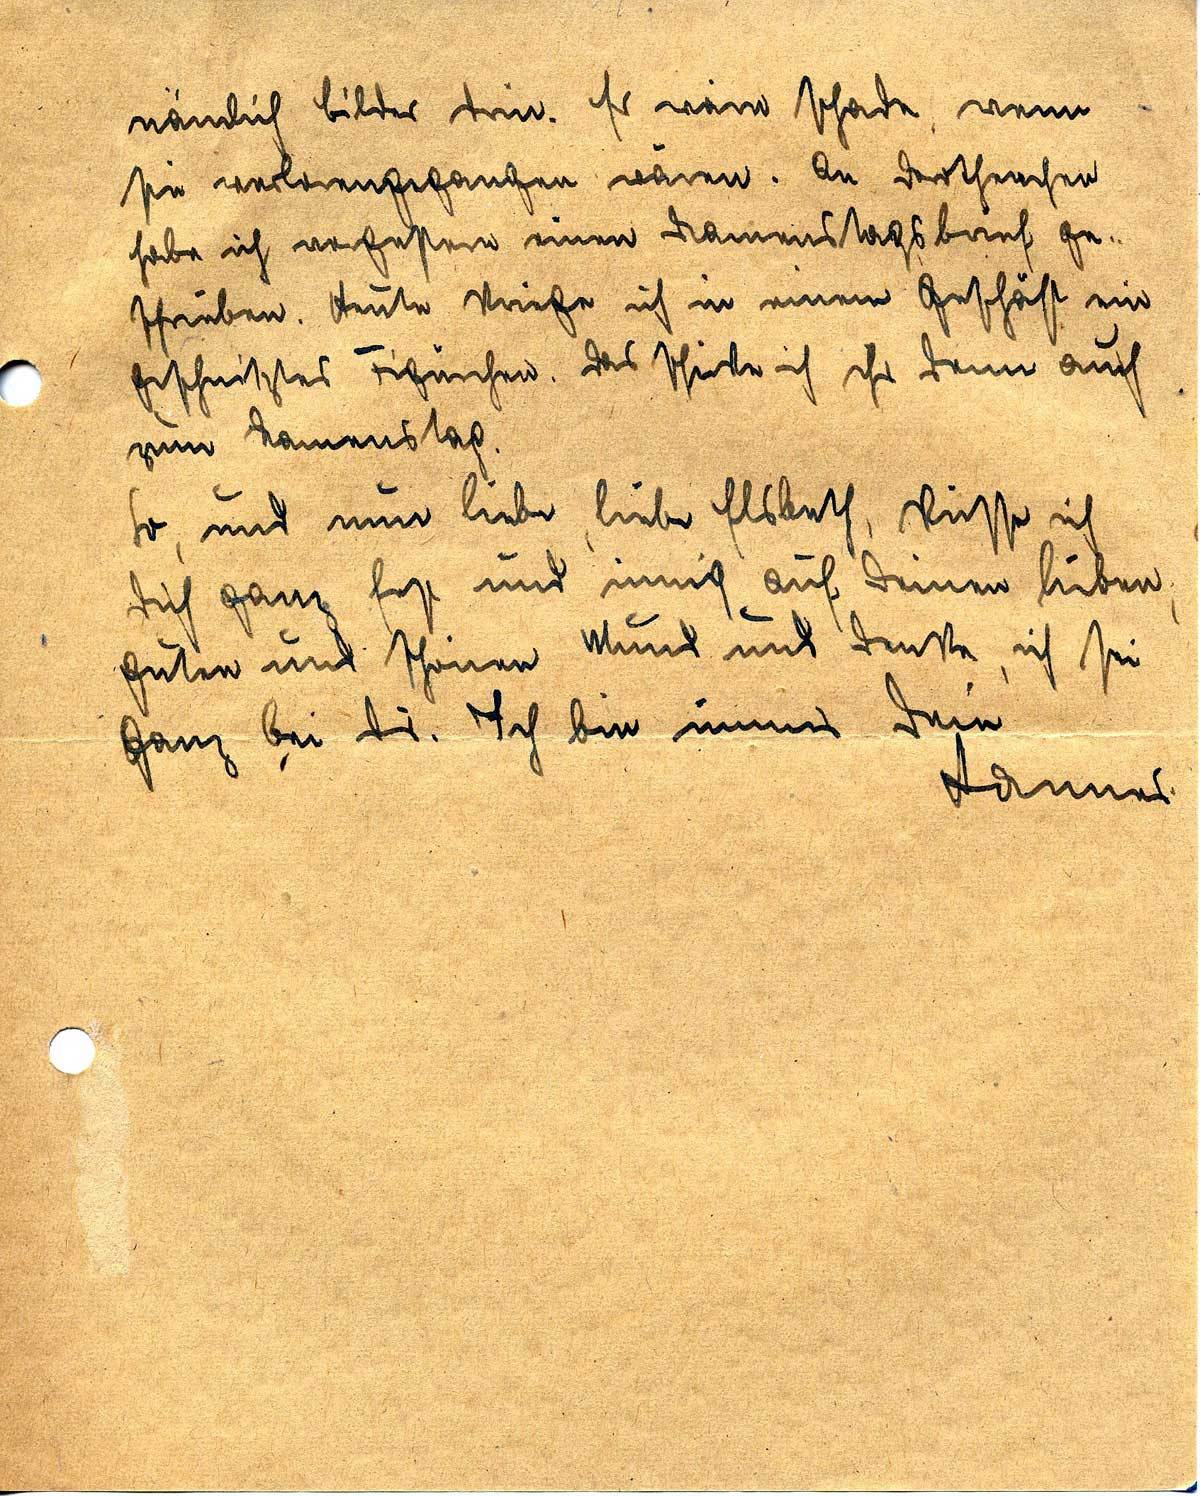 nämlich Bilder drin. Es wäre schade, wenn
sie verlorengegangen wären. An Dorotheechen
habe ich vorgestern einen Namenstagsbrief ge-
schrieben. Heute kriege ich in einem Geschäft ein
geschnitztes Figürchen. Das schicke ich ihr dann auch
zum Namenstag.
So, und nun liebe, liebe Elsbeth, küsse ich
Dich ganz fest und innig auf Deinen lieben,
guten und schönen Mund und denke, ich sei
ganz bei Dir. Ich bin immer Dein
Hannes.